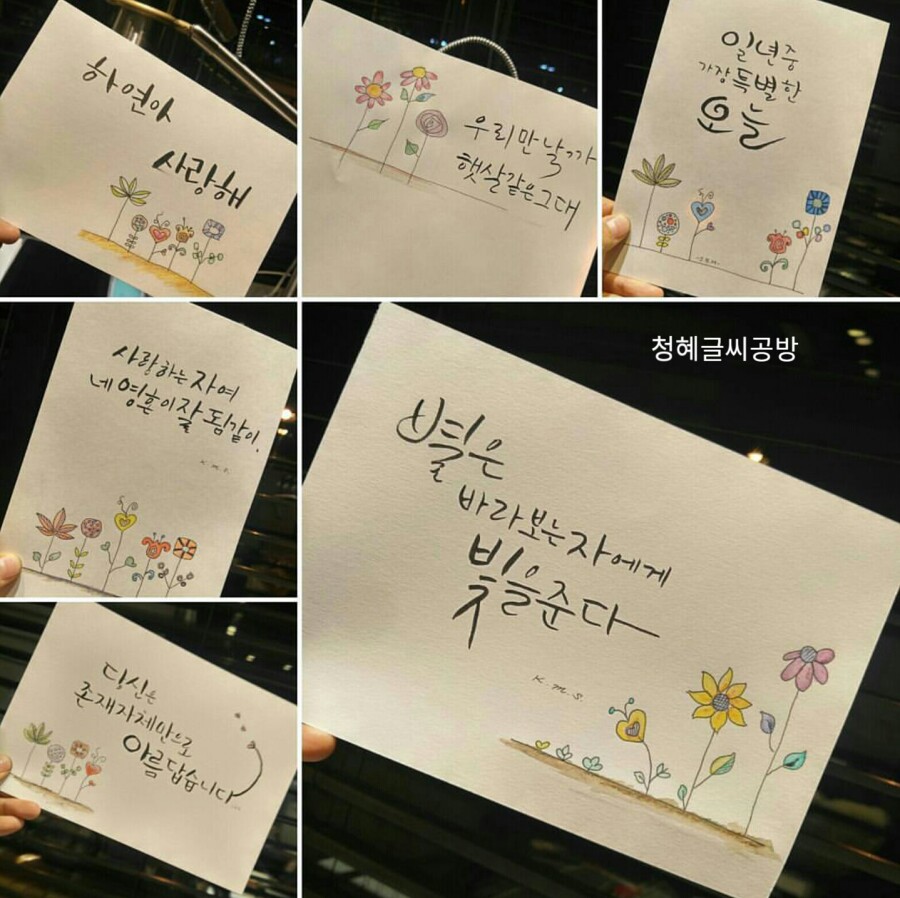 하연아
사랑해
우리만날까
햇살같은그대
일년중
가장특별한
오늘
사랑하는자여
네영혼이잘됨같이.
K.m.s.
청혜글씨공방
별은
바라보는자에게
빛을준다
K.m.s.
당신은
존재자체만으로
아름답습니다